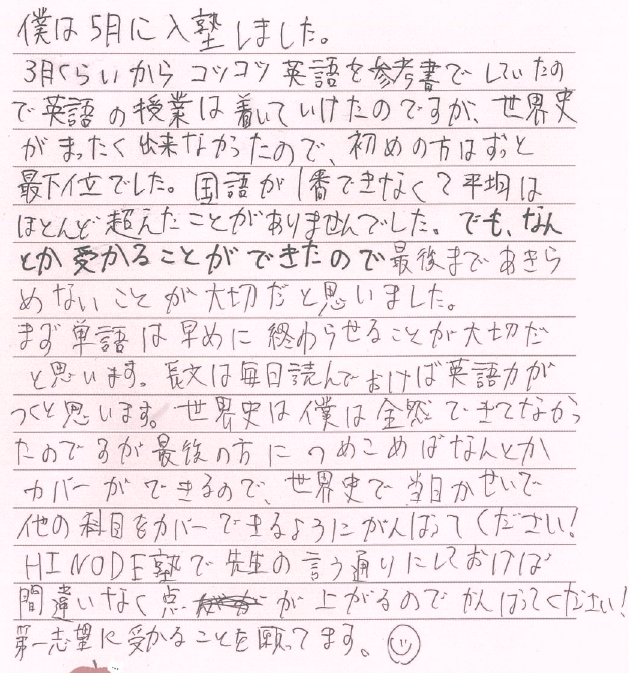 僕は5月に入塾しました。
3月くらいからコツコツ英語を参考書でしていたの
で英語の授業は着いていけたのですが、世界史
がまったく出来なかったので、初めの方はずっと
最下位でした。国語が1番できなくて平均は
ほとんど超えたことがありませんでした。でも、なん
とか受かることができたので最後まであきら
めないことが大切だと思いました。
まず単語は早めに終わらせることが大切だ
と思います。長文は毎日読んでおけば英語力が
つくと思います。世界史は僕は全然できてなかっ
たのですが最後の方につめこめばなんとか
カバーができるので、世界史で当日かせいで
他の科目をカバーできるようにがんばってください!
HINODE塾で先生の言う通りにしておけば
間違いなく点が上がるのでがんばってください!
第一志望に受かることを願ってます。